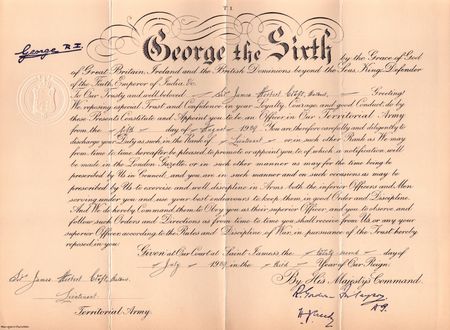 T 1.
George R.I.
George the Sixth by the Grace of God
of Great Britain, Ireland and the British Dominions beyond the Seas, King, Defender
of the Faith, Emperor of India, &c.
To Our Trusty and well beloved James Greeting!
We reposing especial Trust and Confidence in your Loyalty, Courage, and good Conduct, do by
these Presents Constitute and Appoint you to be an Officer in Our Territorial Army
from the day of August 1939. You are therefore carefully and diligently to
discharge your Duty as such in the Rank of Lieutenant or in such other Rank as We may
from time to time hereafter be pleased to promote or appoint you to, of which a notification will
be made in the London Gazette, or in such other manner as may for the time being be
prescribed by Us in Council, and you are in such manner and on such occasions as may be
prescribed by Us to exercise and well discipline in Arms both the inferior Officers and Men
serving under you and use your best endeavours to keep them in good Order and Discipline.
And We do hereby Command them to Obey you as their superior Officer, and you to observe and
follow such Orders and Directions as from time to time you shall receive from Us, or any your
superior Officer, according to the Rules and Discipline of War, in pursuance of the Trust hereby
reposed in you.
Given at Our Court, at Saint James's the second day of
July 1939 in the Third Year of Our Reign
By His Majesty's Command.
James
Lieutenant.
Territorial Army.